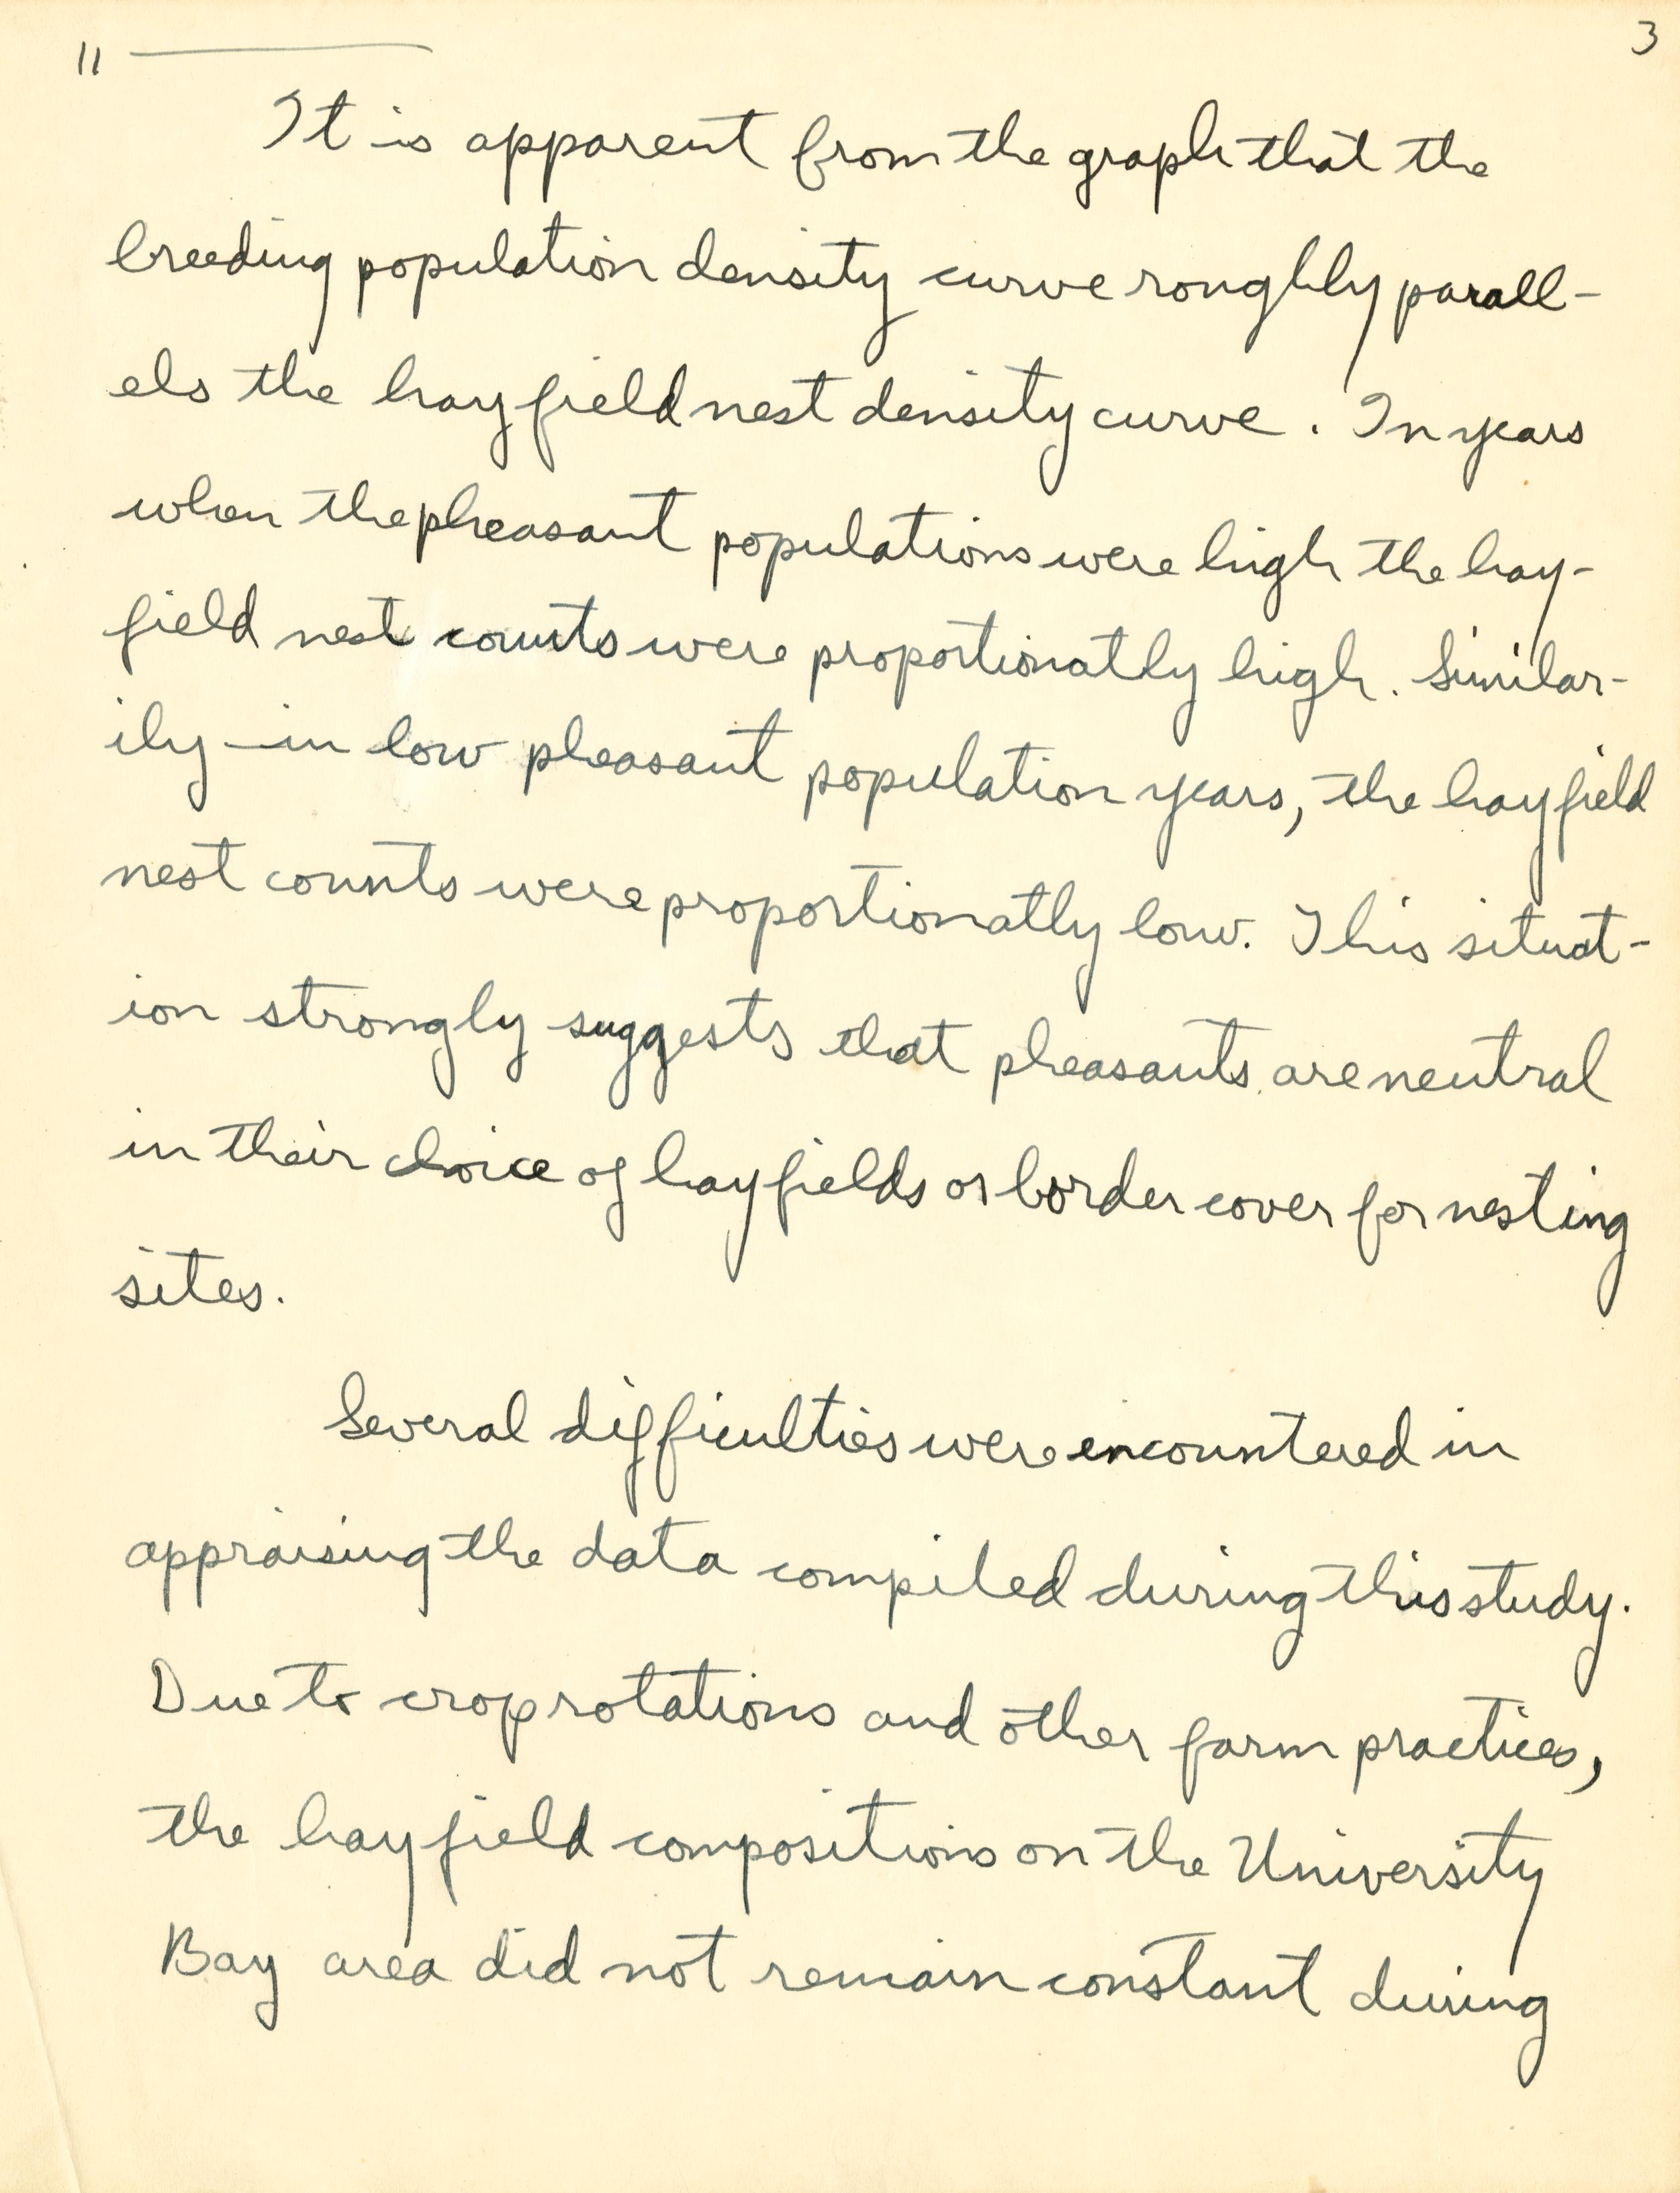 11 3
It is apparent from the graph that the
breeding population density curve roughly parall-
els the hayfield nest density curve. In years
when the pheasant populations were high the hay-
field nest counts were proportionatly high. Similar-
ily - in low pheasant population years, the hayfield
nest counts were proportionatly low. This situat-
ion strongly suggests that pheasants are neutral
in their choice of hayfields or border cover for nesting
sites.
Several difficulties were encountered in
appraising the data compiled during this study.
Due to crop rotations and other farm practices,
the hayfield compositions on the University
Bay area did not remain constant during